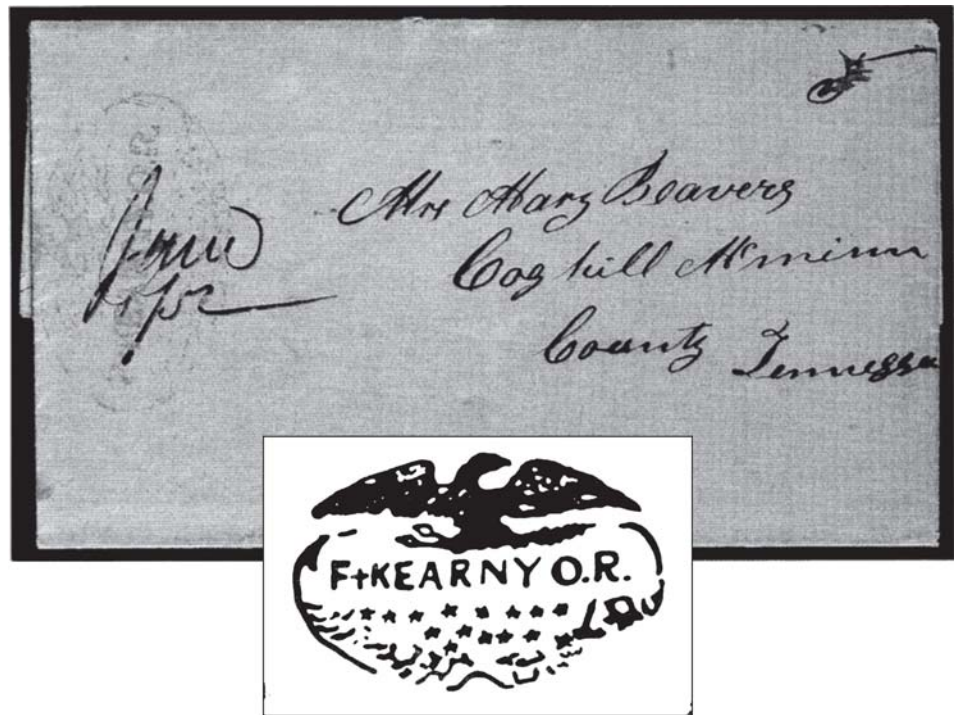 5
June
Mrs Mary Beavers
Coghill Mcminn
County Tennessee
FtKEARNY O.R.